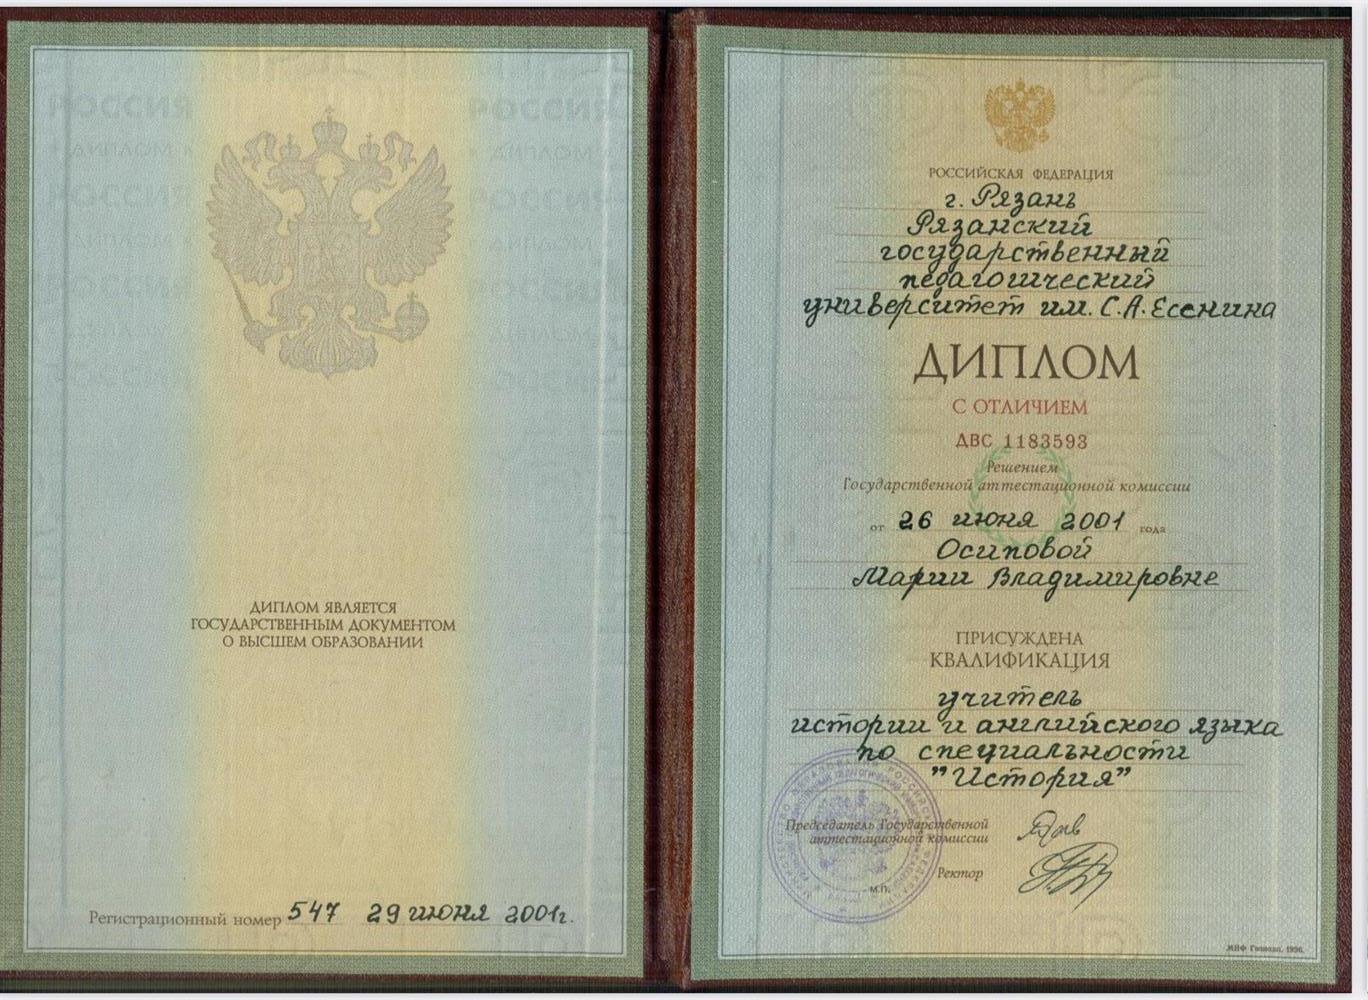 РОССИЯ
РОССИЯ
ДИПЛОМ
ДИПЛОМ
РОССИЯ
РОССИЯ
ДИПЛОМ
ДИПЛОМ
РОССИЯ
РОССИЯ
ДИПЛОМ
ДИПЛОМ
РОССИЯ
РОССИЯ
ДИПЛОМ ЯВЛЯЕТСЯ
ГОСУДАРСТВЕННЫМ ДОКУМЕНТОМ
О ВЫСШЕМ ОБРАЗОВАНИИ
Регистрационный номер 547 29 июня 2001г.
РОССИЙСКАЯ ФЕДЕРАЦИЯ
г. Рязань
Рязанский
государственный
педагогический
университет им. С.А. Есенина
ДИПЛОМ
С ОТЛИЧИЕМ
ДВС 1183593
Решением
Государственной аттестационной комиссии
от 26 июня 2001 года
Осиповой
Марии Владимировне
ПРИСУЖДЕНА
КВАЛИФИКАЦИЯ
учитель
истории и английского языка
по специальности
"История"
Председатель Государственной
аттестационной комиссии
Ректор
М.П.
МПФ Гознака. 1996.